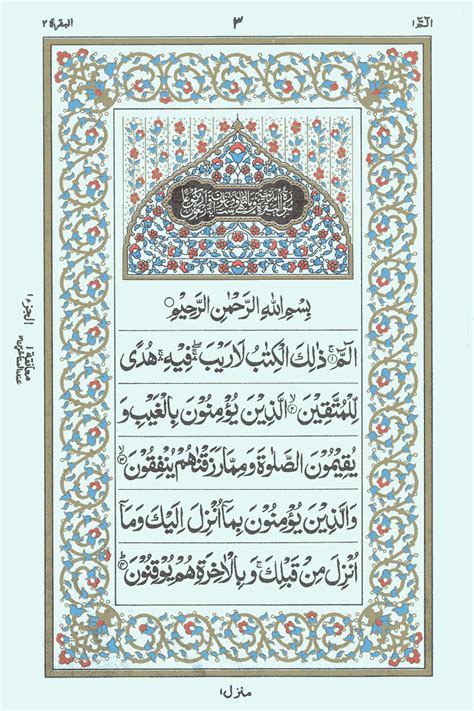 الٓمّٓ ١
٣
البقرة ٢
بِسْمِ اللهِ الرَّحْمٰنِ الرَّحِيْمِ
الٓمّٓ ۚ﴿١﴾ ذٰلِكَ الْكِتٰبُ لَا رَيْبَ ۛۖ فِيْهِ ۛۚ هُدًى
لِّلْمُتَّقِيْنَ ۙ﴿٢﴾ الَّذِيْنَ يُؤْمِنُوْنَ بِالْغَيْبِ وَ
يُقِيْمُوْنَ الصَّلٰوةَ وَمِمَّا رَزَقْنٰهُمْ يُنْفِقُوْنَ ۙ﴿٣﴾
وَالَّذِيْنَ يُؤْمِنُوْنَ بِمَآ اُنْزِلَ اِلَيْكَ وَمَآ
اُنْزِلَ مِنْ قَبْلِكَ ۚ وَبِالْاٰخِرَةِ هُمْ يُوْقِنُوْنَ ؕ
الجزء ١
معانقة ١
منزل ١